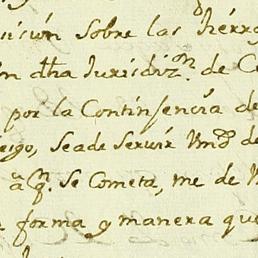 sobre las
dha Jurisdizn. de
por la Continjencia de
seade Servir Vmd de
a q. Se Cometa, me de
forma y manera que